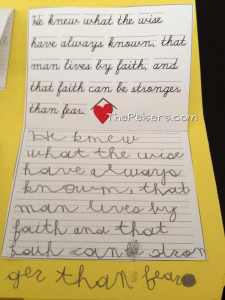 We knew what the wise
have always known, that
man lives by faith, and
that faith can be stronger
than fear.
ThePelsers.com
We knew
what the wise
have always
known, that
man lives by
faith and that
faith can be stron
ger than fear